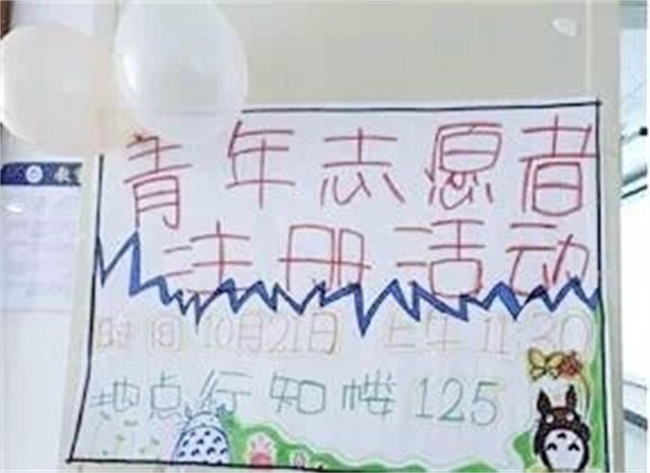 青年志愿者
注册活动
时间 10月21日 上午 11:30
地点 行知楼 125